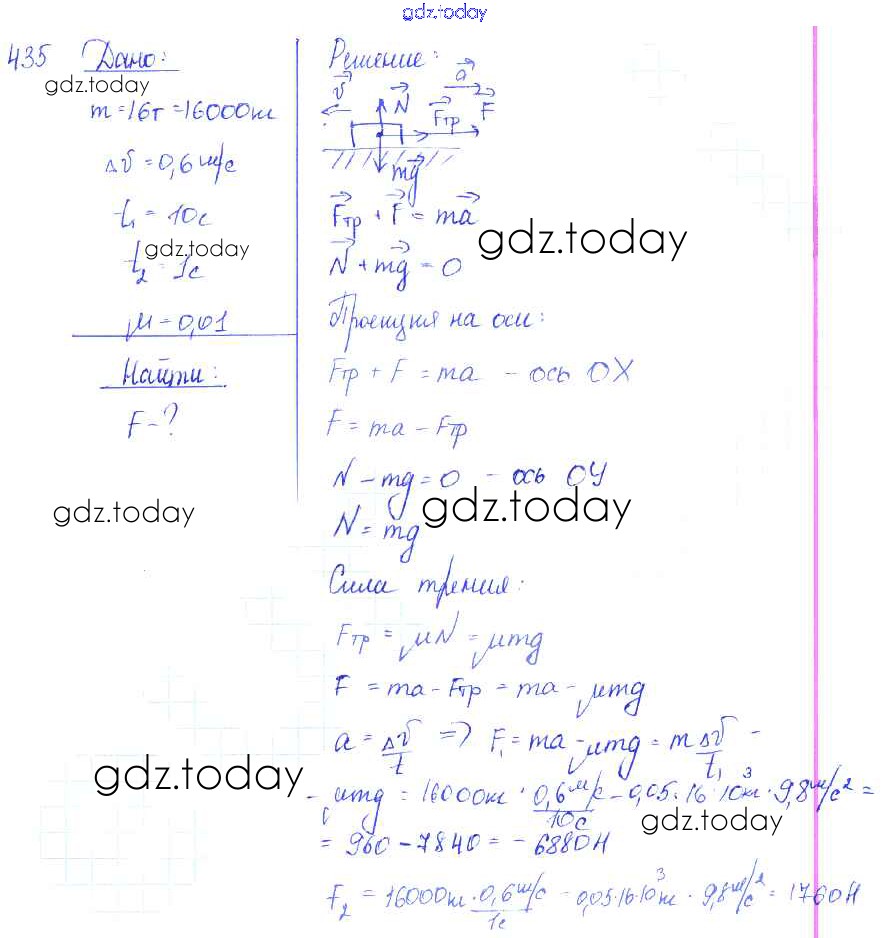 gdz.today
435 Дано:
gdz.today
m=16т=16000кг
Δv=0,6 м/с
t₁=10с
gdz.today
t₂=1с
μ=0,01
Найти:
F-?
gdz.today
Решение:
v N a
Fтр F
mg
Fтр + F = ma
gdz.today
N + mg = 0
Проекция на оси:
Fтр + F = ma - ось OX
F = ma - Fтр
N - mg = 0 - ось OY
gdz.today
N = mg
Сила трения:
Fтр = μN = μmg
F = ma - Fтр = ma - μmg
a = Δv/t => F₁ = ma - μmg = m Δv/t₁ -
gdz.today
- μmg = 16000кг · 0,6 м/с/10с - 0,05·16·10³кг · 9,8 м/с² =
gdz.today
= 960 - 7840 = - 6880Н
F₂ = 16000кг · 0,6 м/с/1с - 0,05·16·10³кг · 9,8 м/с² = 1760Н